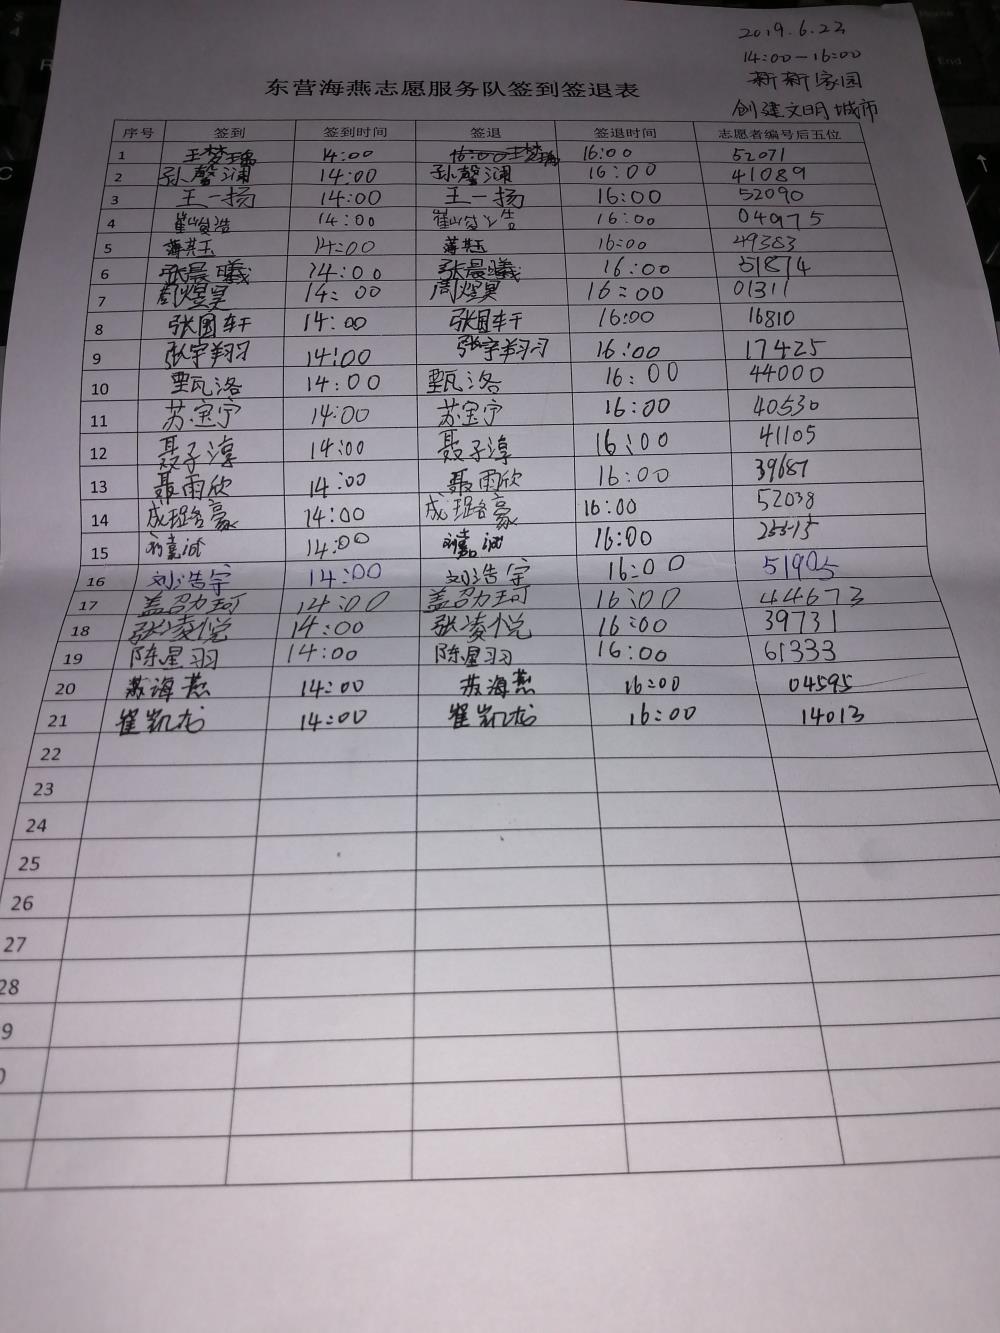 2019.6.23
14:00—16:00
新新家园
创建文明城市
东营海燕志愿服务队签到签退表
序号 签到 签到时间 签退 签退时间 志愿者编号后五位
1 王梦瑶 14:00 王梦瑶 16:00 52071
2 孙馨澜 14:00 孙馨澜 16:00 41089
3 王一扬 14:00 王一扬 16:00 52090
4 崔峻浩 14:00 崔峻浩 16:00 04975
5 薄其玉 14:00 薄其玉 16:00 49383
6 张晨曦 14:00 张晨曦 16:00 51874
7 周煜昊 14:00 周煜昊 16:00 01311
8 张国轩 14:00 张国轩 16:00 16810
9 张宇翔 14:00 张宇翔 16:00 17425
10 14:00 16:00 44000
11 苏宝宁 14:00 苏宝宁 16:00 40530
12 聂子淳 14:00 聂子淳 16:00 41105
13 聂雨欣 14:00 聂雨欣 16:00 39687
14 成璐豪 14:00 成璐豪 16:00 52038
15 14:00 16:00 25515
16 刘浩宇 14:00 刘浩宇 16:00 51905
17 盖召力珂 14:00 盖召力珂 16:00 44673
18 张凌悦 14:00 张凌悦 16:00 39731
19 陈星羽 14:00 陈星羽 16:00 61333
20 苏海燕 14:00 苏海燕 16:00 04595
21 崔凯龙 14:00 崔凯龙 16:00 14013
22
23
24
25
26
27
28
9